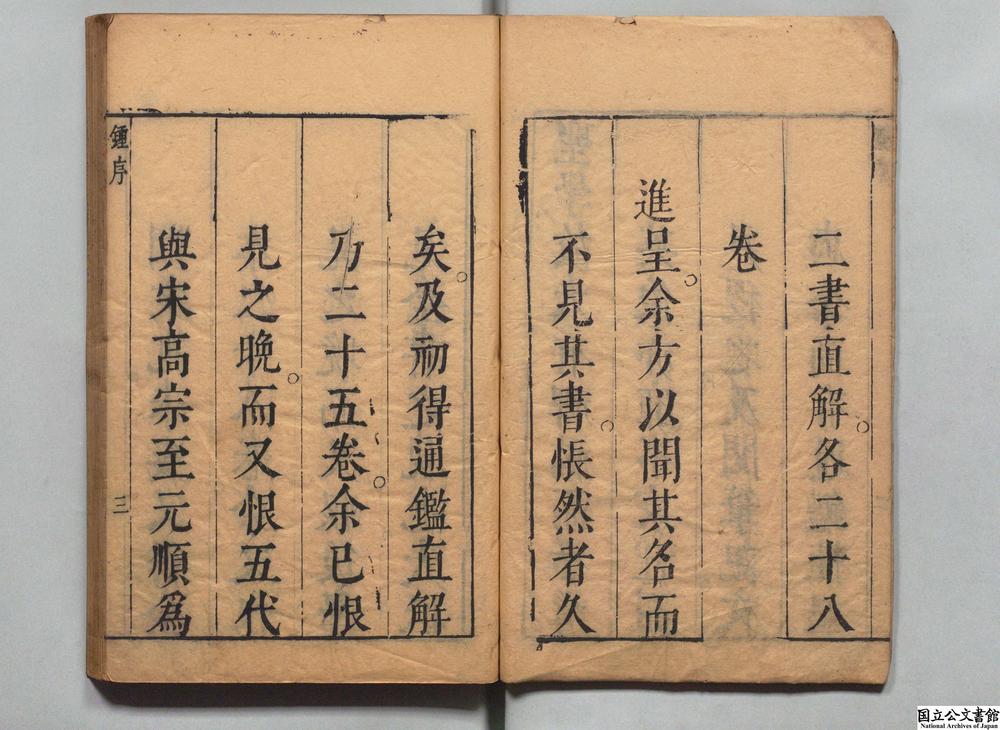 二書直解各二十八
卷
進呈余方以聞其名而
不見其書悵然者久
矣及初得通鑑直解
乃二十五卷余已恨
見之晚而又恨五代
與宋高宗至元順為
鍾序
三
国立公文書館
National Archives of Japan